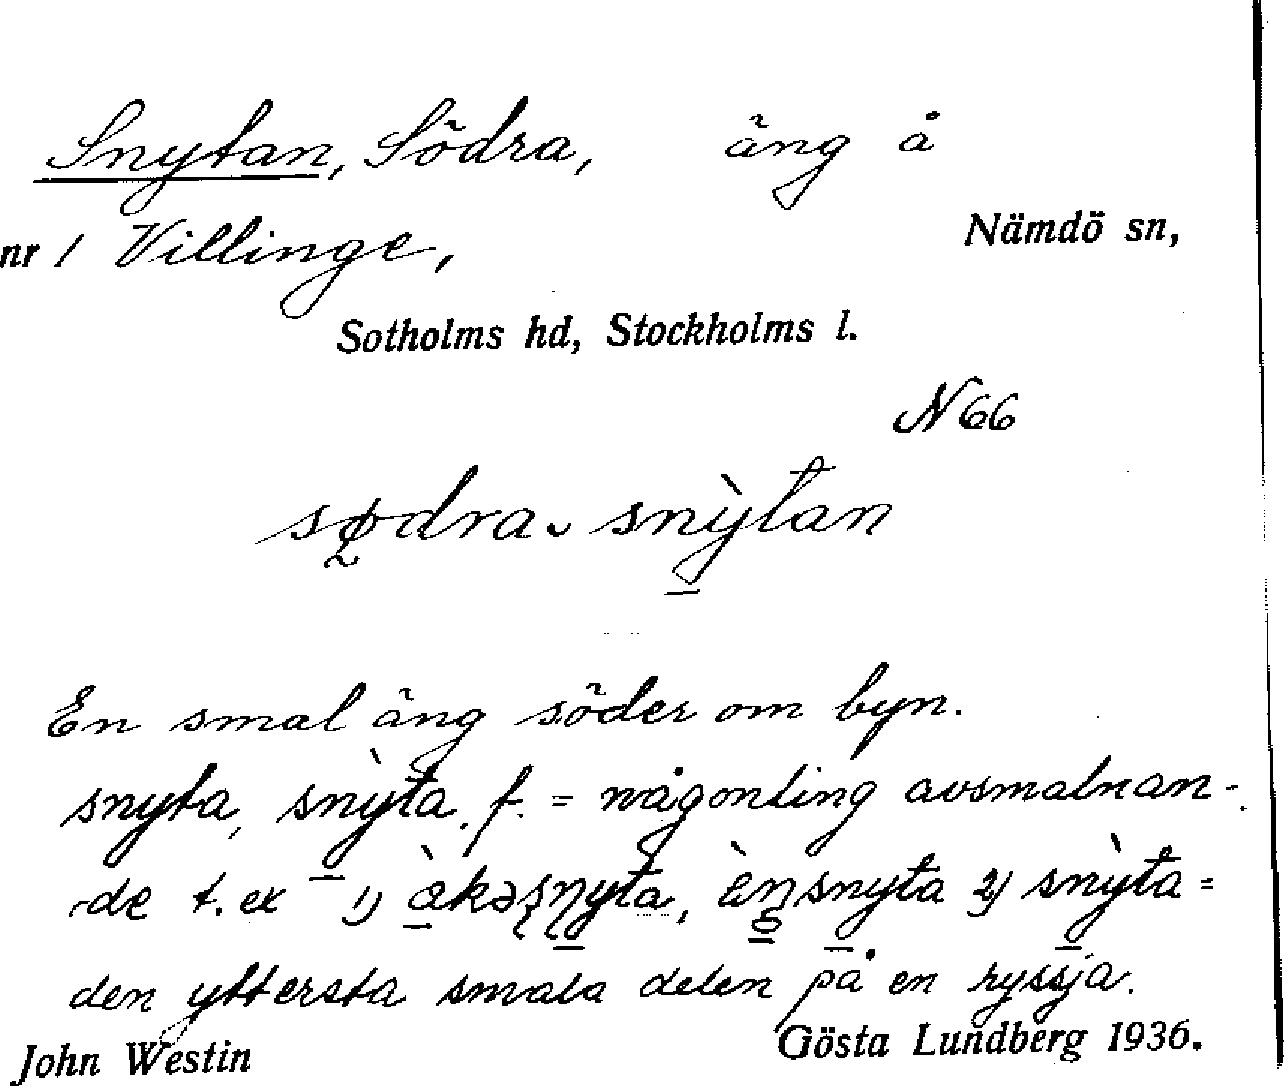 Snytan, Södra, äng å
nr 1 Villinge, Nämdö sn,
Sotholms hd, Stockholms l.
N 66
södra snỳtan
En smal äng söder om byn.
snyta, snỳta f. = någonting avsmalnan-
de t.ex 1) àkəṣṇyta, èŋsnyta 2) snỳta =
den yttersta smala delen på en ryssja.
John Westin Gösta Lundberg 1936.